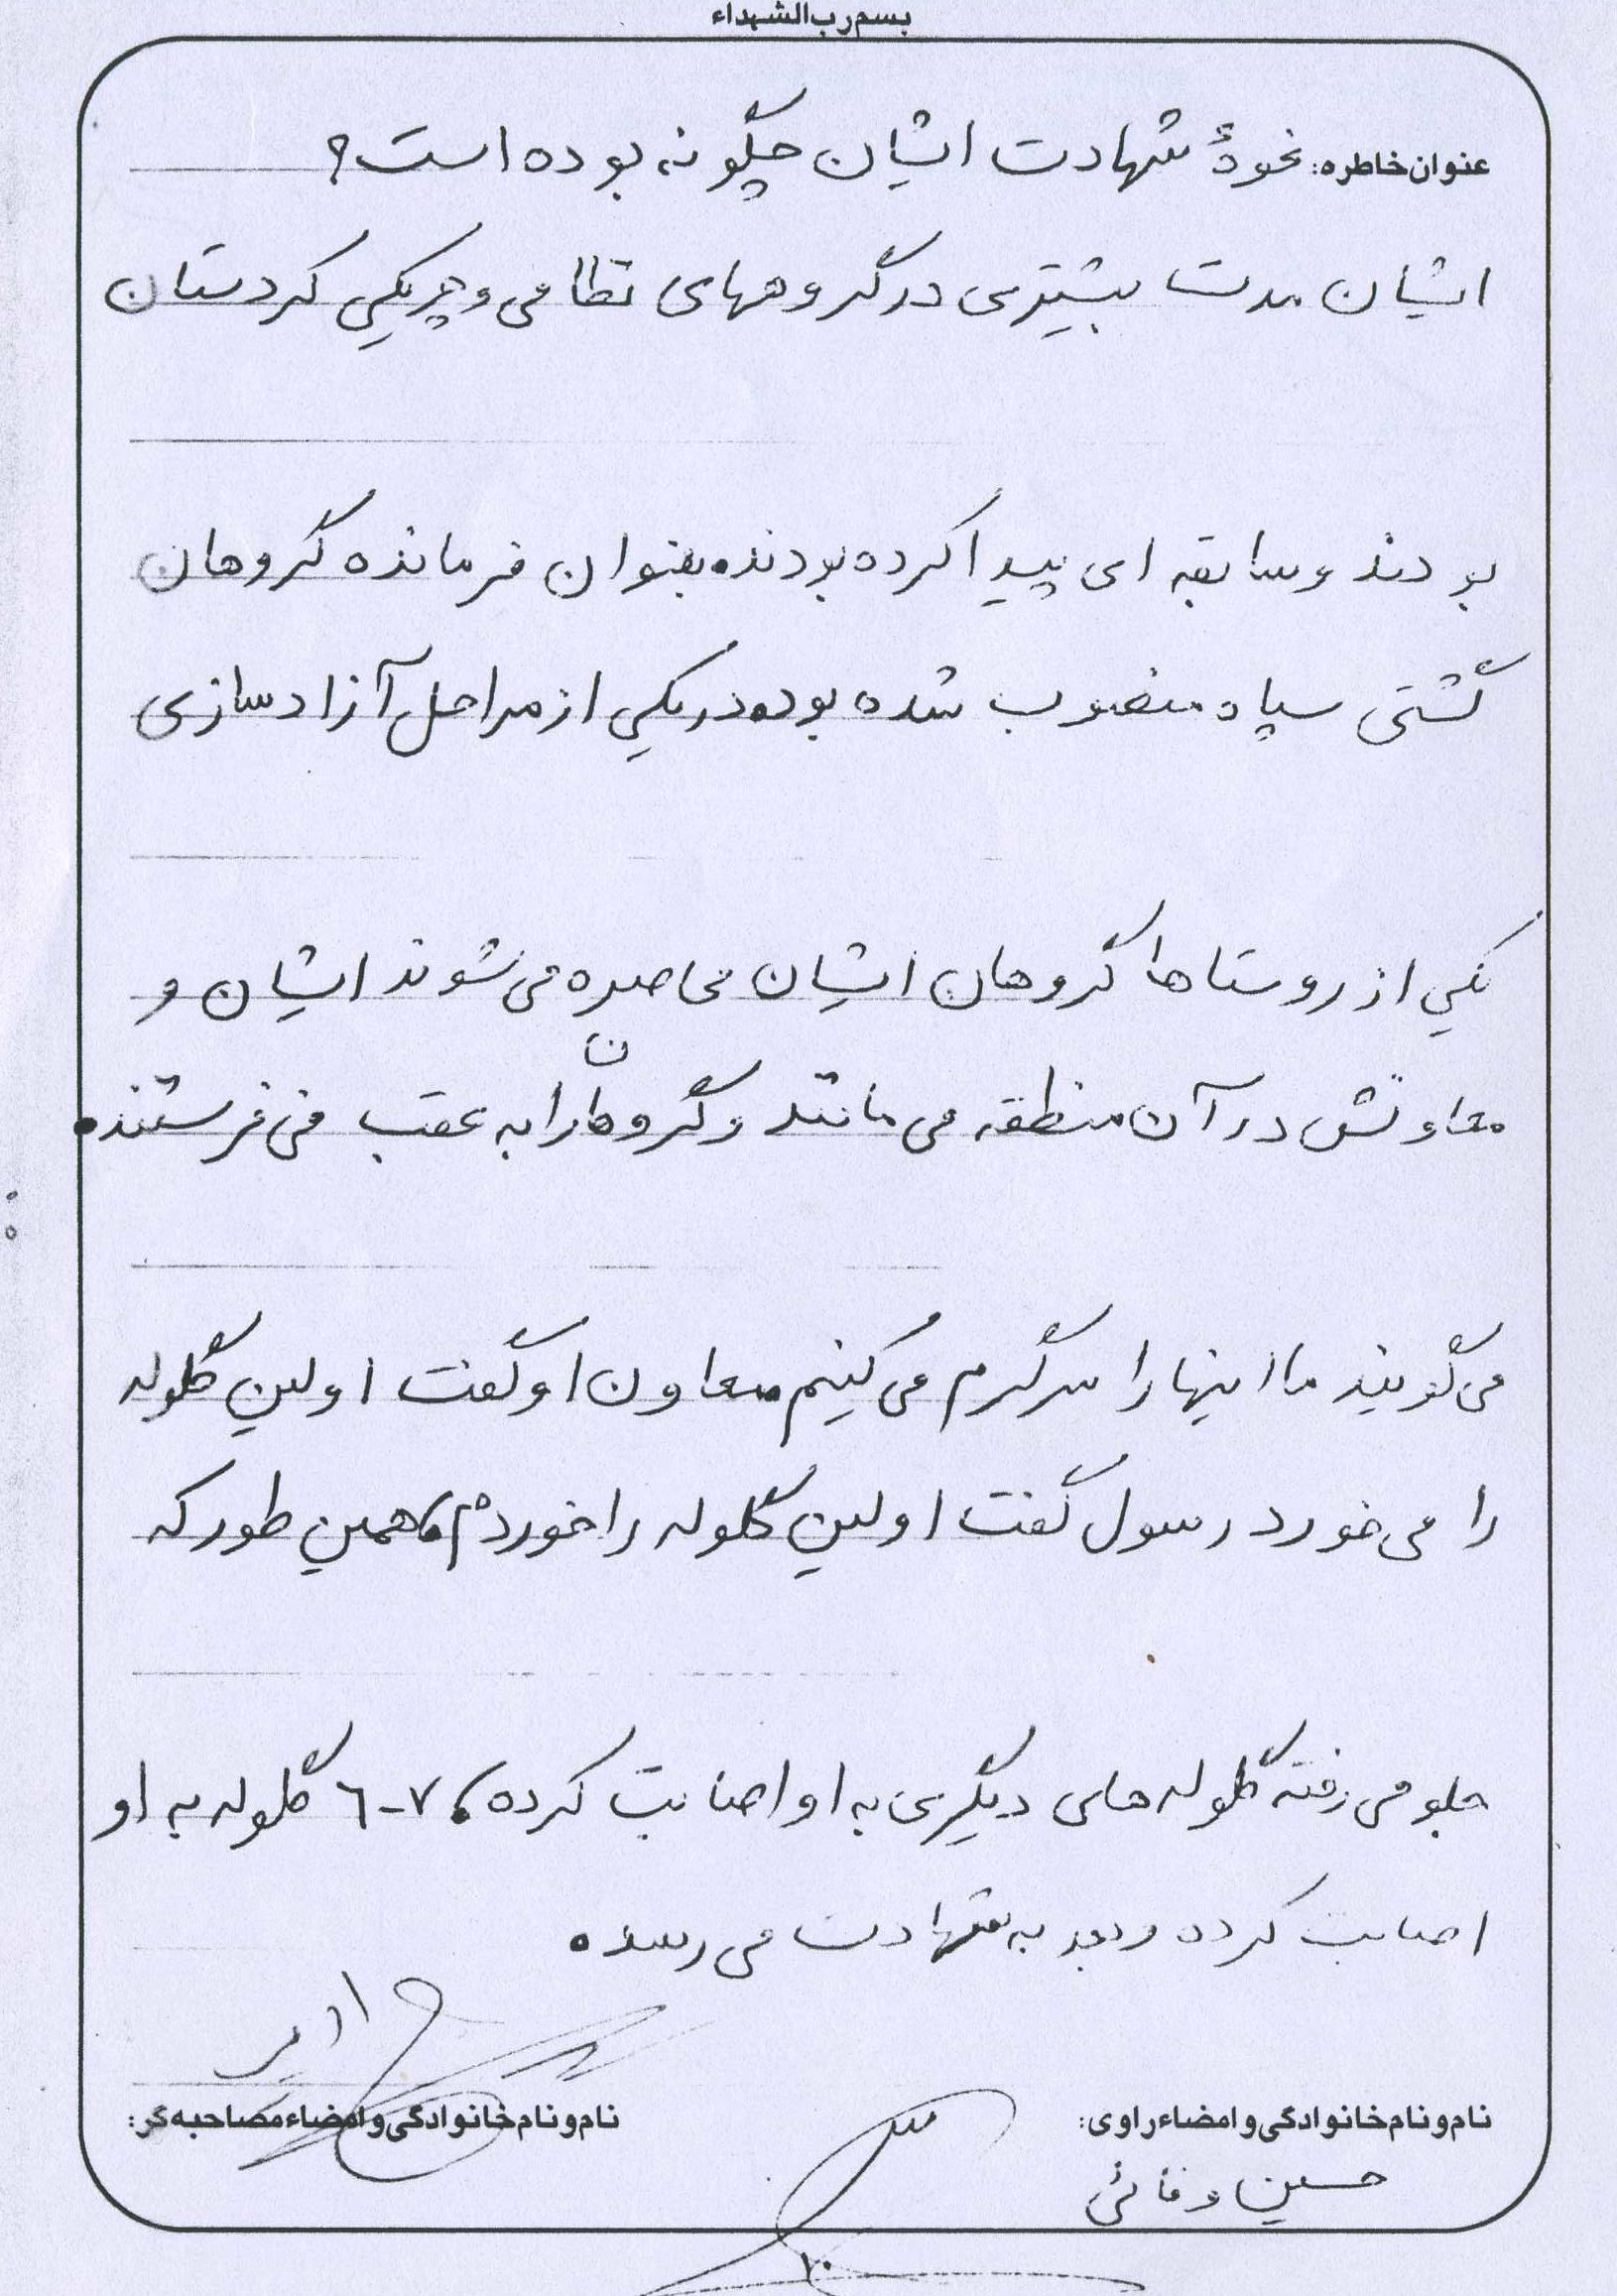 بسم رب الشهداء
عنوان خاطره: نحوهٔ شهادت ایشان چگونه بوده است؟
ایشان مدت بیشتری در گروههای نظامی و چریکی کردستان
بودند و سابقه ای پیدا کرده بودند. بعنوان فرمانده گروهان
گشتی سپاه منصوب شده بود. در یکی از مراحل آزادسازی
یکی از روستاها گروهان ایشان محاصره می شوند ایشان و
معاونش در آن منطقه می مانند و گروهان را به عقب می فرستند.
می گویند ما اینها را سرگرم می کنیم. معاون او گفت اولین گلوله
را می خورد رسول گفت اولین گلوله را خوردم، همین طور که
جلو می رفته گلوله های دیگری به او اصابت کرده، ۷-۶ گلوله به او
اصابت کرده و بعد به شهادت می رسد.
نام و نام خانوادگی و امضاء راوی:
نام و نام خانوادگی و امضاء مصاحبه گر:
حسین وفائی
۱۰